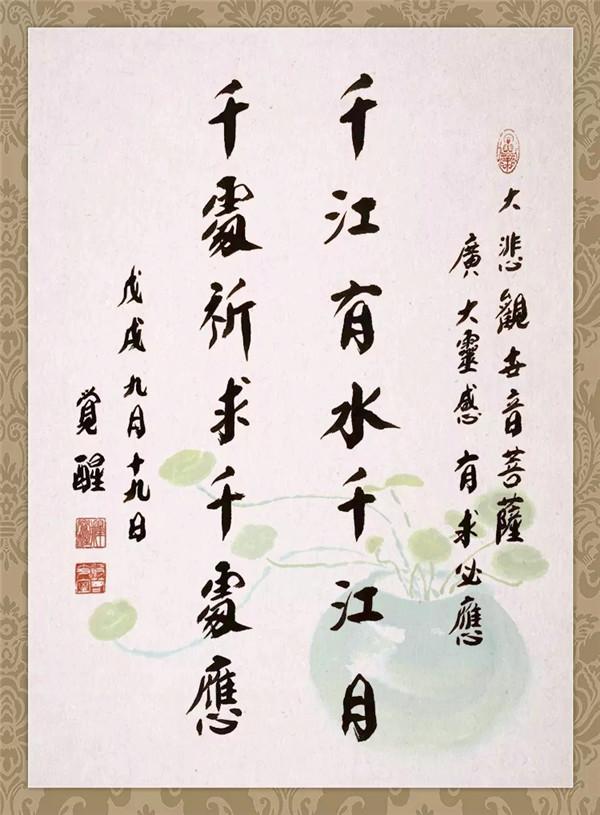 大悲觀世音菩薩
廣大靈感 有求必應
千江有水千江月
千處祈求千處應
戊戌九月十九日
覺醒